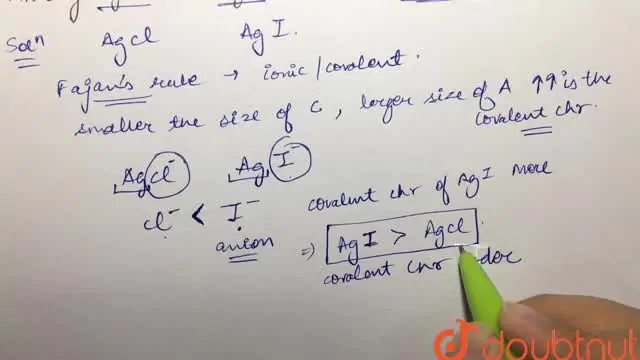 Solⁿ AgCl AgI.
Fajan's rule → ionic/covalent.
smaller the size of C, larger size of A ↑↑ is the
covalent chr.
AgCl⁻ AgI⁻
Cl⁻ < I⁻
anion
covalent chr of AgI more
⇒ AgI > AgCl.
covalent chr
doubtnut